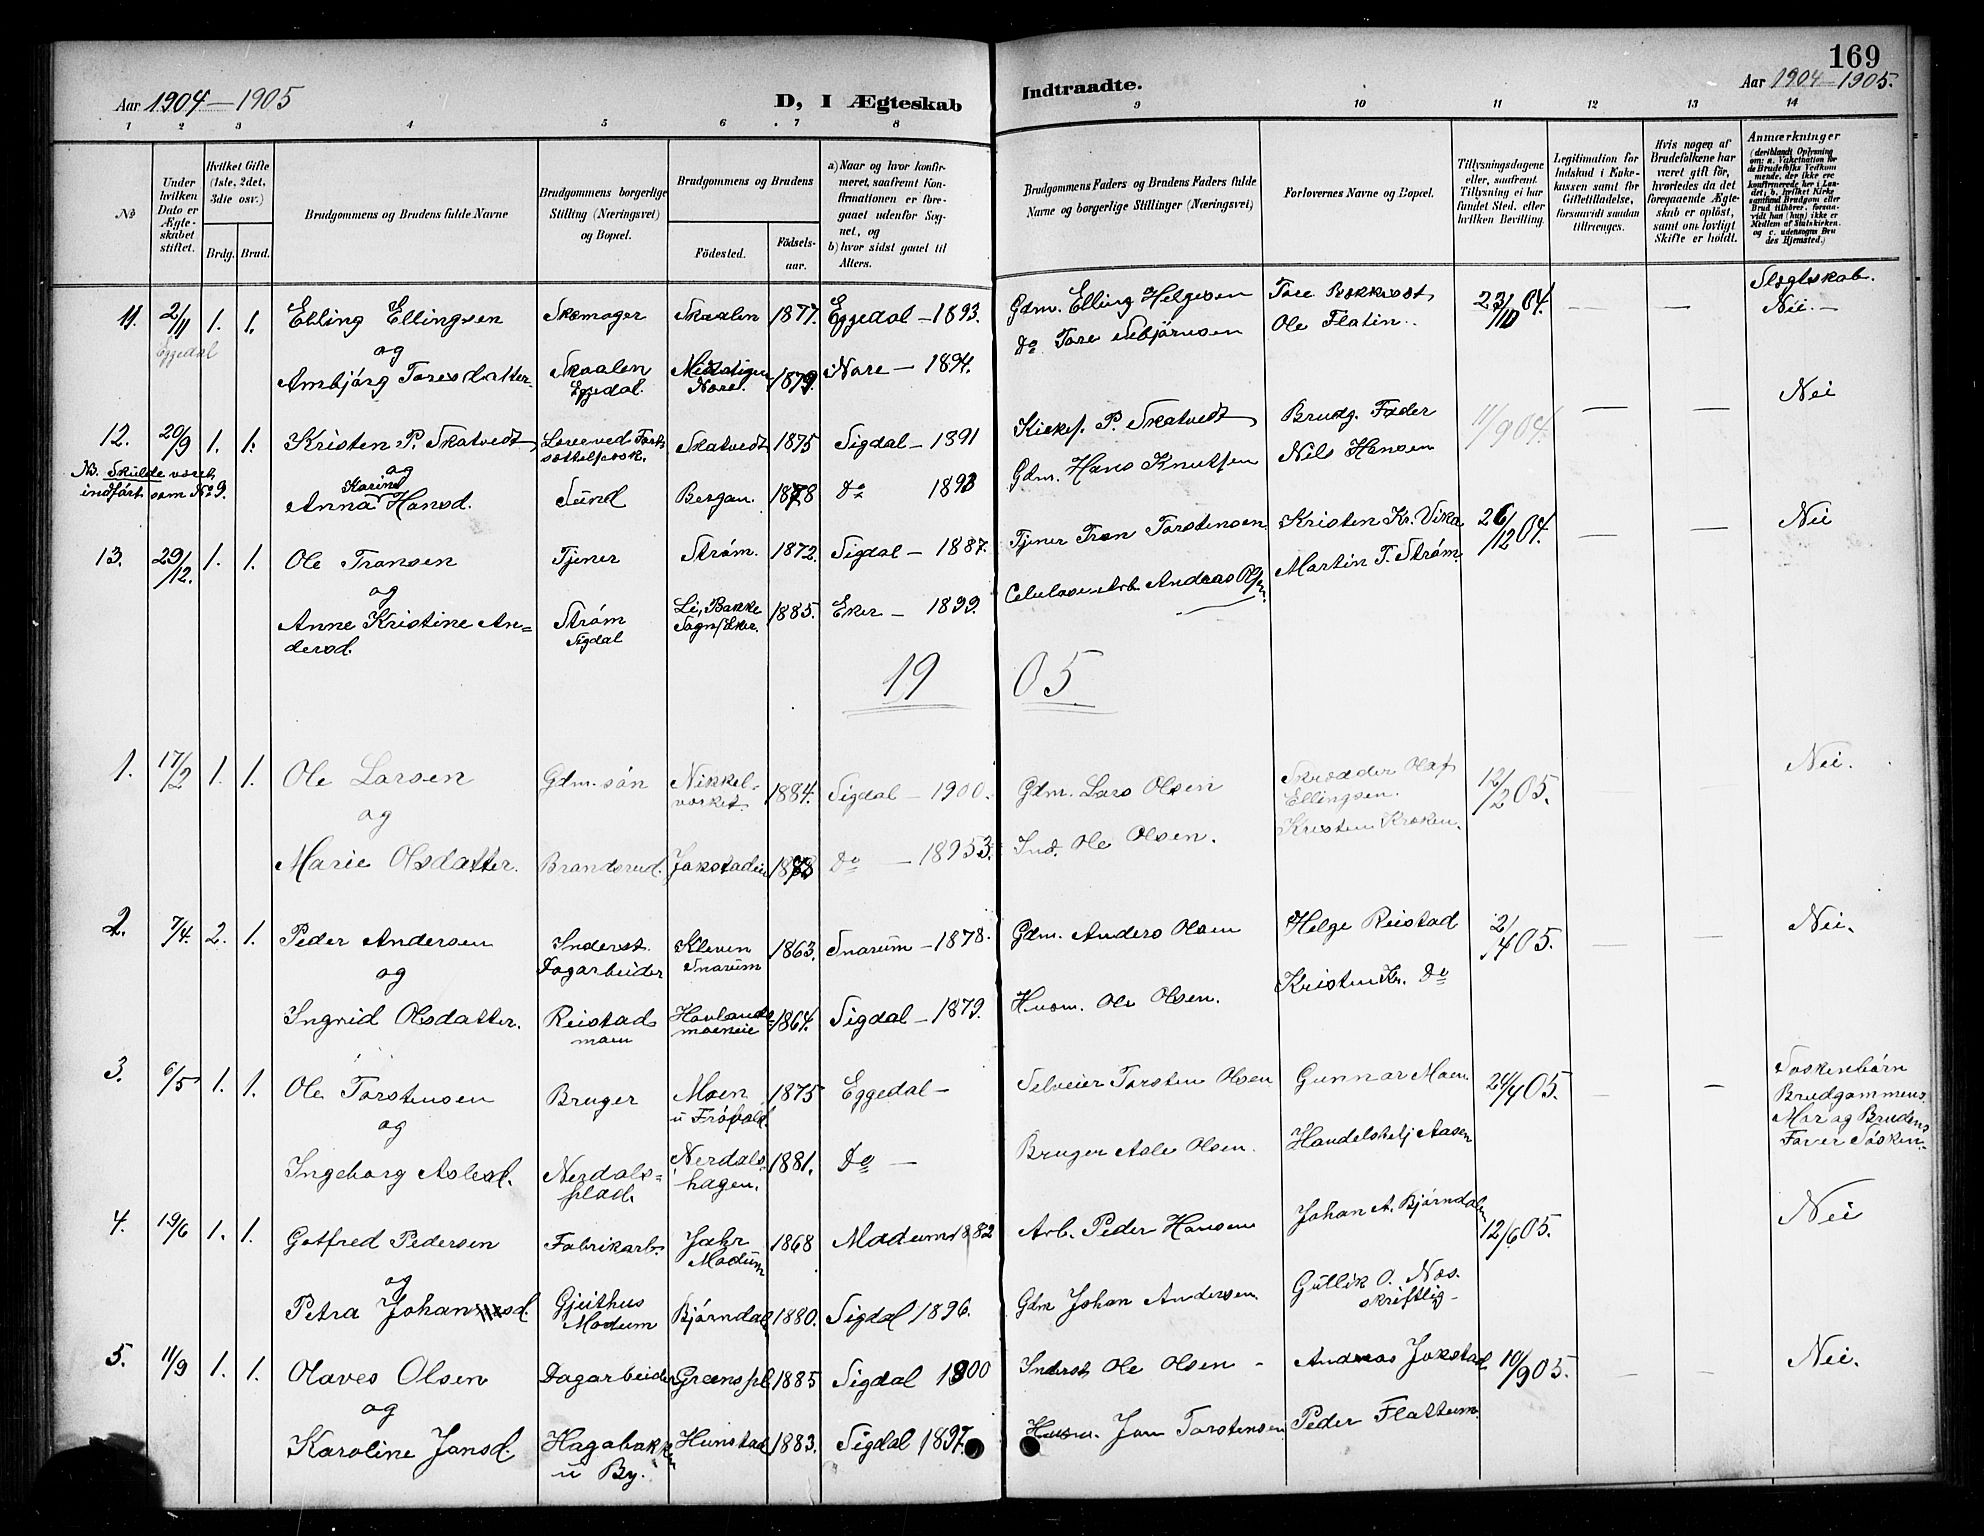 169
Aar 1904-1905
D, I Ægteskab
Indtraadte.
Aar 1904-1905.
1 2 3 4 5 6 7 8 9 10 11 12 13 14
No
Under hvilken Dato er Ægteskabet stiftet.
Hvilket Gifte (1ste, 2det, 3die osv.)
Brdg. Brud.
Brudgommens og Brudens fulde Navne
Brudgommens borgerlige Stilling (Næringsvei) og Bopæl.
Brudgommens og Brudens
Fødested.
Fødselsaar.
a) Naar og hvor konfirmeret, saafremt Konfirmationen er foregaaet udenfor Sognet, og
b) hvor sidst gaaet til Alters.
Brudgommens Faders og Brudens Faders fulde Navne og borgerlige Stillinger (Næringsvei)
Forlovernes Navne og Bopæl.
Tillysningsdagene eller, saafremt Tillysning ei har fundet Sted, efter hvilken Bevilling.
Legitimation for Indskud i Enkekassen samt for Giftetilladelse, forsaavidt saadan tiltrænges.
Hvis nogen af Brudefolkene har været gift før, hvorledes da det foregaaende Ægteskab er opløst, samt om lovligt Skifte er holdt.
Anmærkninger
11. 2/11 1. 1. Elling Ellingsen Skomager Skaalen 1877. Eggedal - 1893. Gdm. Elling Helgesen Tore Bakkerost 23/10 04. — — Slegtskab. Nei.
Eggedal
og
Ambjörg Toresdatter Skaalen Eggedal. Nore. 1879. Nore - 1894. Do Tore Asbjörnsen Ole Flatin.
12. 20/9 1. 1. Kristen P. Skatvedt Skatvedt 1875 Sigdal - 1891 Kirkes. P. Skatvedt Brudg. Fader 11/9 04. — — Nei
NB. Skulde været indført som No 9.
og
Anna Karine Hansd. Sund Bergan. 1878 Do 1893 Gdm. Hans Knutsen Nils Hansen
13. 29/12. 1. 1. Ole Transen Tjener Strøm. 1872. Sigdal - 1887. Tjener Tran Torstensen Kristen Kr. Vika 26/12 04. — — Nei
og
Anne Kristine Andersd. Strøm Sigdal Li, Bakke Sogn, Eker. 1885. Eker - 1899. Celulose Arb. Andreas Martin T. Strøm.
1905
1. 17/2 1. 1. Ole Larsen Gdm. søn Nikkelværket 1884. Sigdal - 1900. Gdm. Lars Olsen Skrædder Olaf Ellingsen. 12/2 05. Nei.
og
Marie Olsdatter. Brandsrud. Jokstadeie Do Ind. Ole Olsen. Kristen Kroken.
2. 7/4. 2. 1. Peder Andersen Inderst. Dagarbeider Kleven Snarum 1863. Snarum - 1878. Gdm. Anders Olsen Helge Reistad 2/4 05. — — Nei.
og
Ingrid Olsdatter. Reistadmoen Hovlandsmoeneie 1864. Sigdal - 1879. Husm. Ole Olsen. Kristen Kr. Do
3. 6/5 1. 1. Ole Torstensen Bruger Moen u Frøvold. 1875 Eggedal - Selveier Torsten Olsen Gunnar Moen. 24/4 05. — — Søskenbørn Brudgommens Mor og Brudens Far er Søsken.
og
Ingeborg Aslesd. Nerdalsplad. Nerdalshagen. 1881. Do - Bruger Asle Olsen. Handelsbetj Aasen
4. 19/6 1. 1. Gotfred Pedersen Fabrikarb. Jahr Modum 1868 Modum 1882 Arb. Peder Hansen Johan A. Bjørndalen 12/6 05. Nei
og
Petra Johansd. Gjeithus Modum Bjørndal 1880. Sigdal 1896. Gdm Johan Andersen. Gullik O. Næs. skriftlig
5. 11/9 1. 1. Olaves Olsen Dagarbeider Greenspl. 1885 Sigdal 1900 Inderst Ole Olsen - Andreas Jokstad 10/9 05. — — Nei.
og
Karoline Jansd. Hagabakken u By. Hunstad 1883. Sigdal 1897. Husm. Jan Torstensen Peder Flattum.